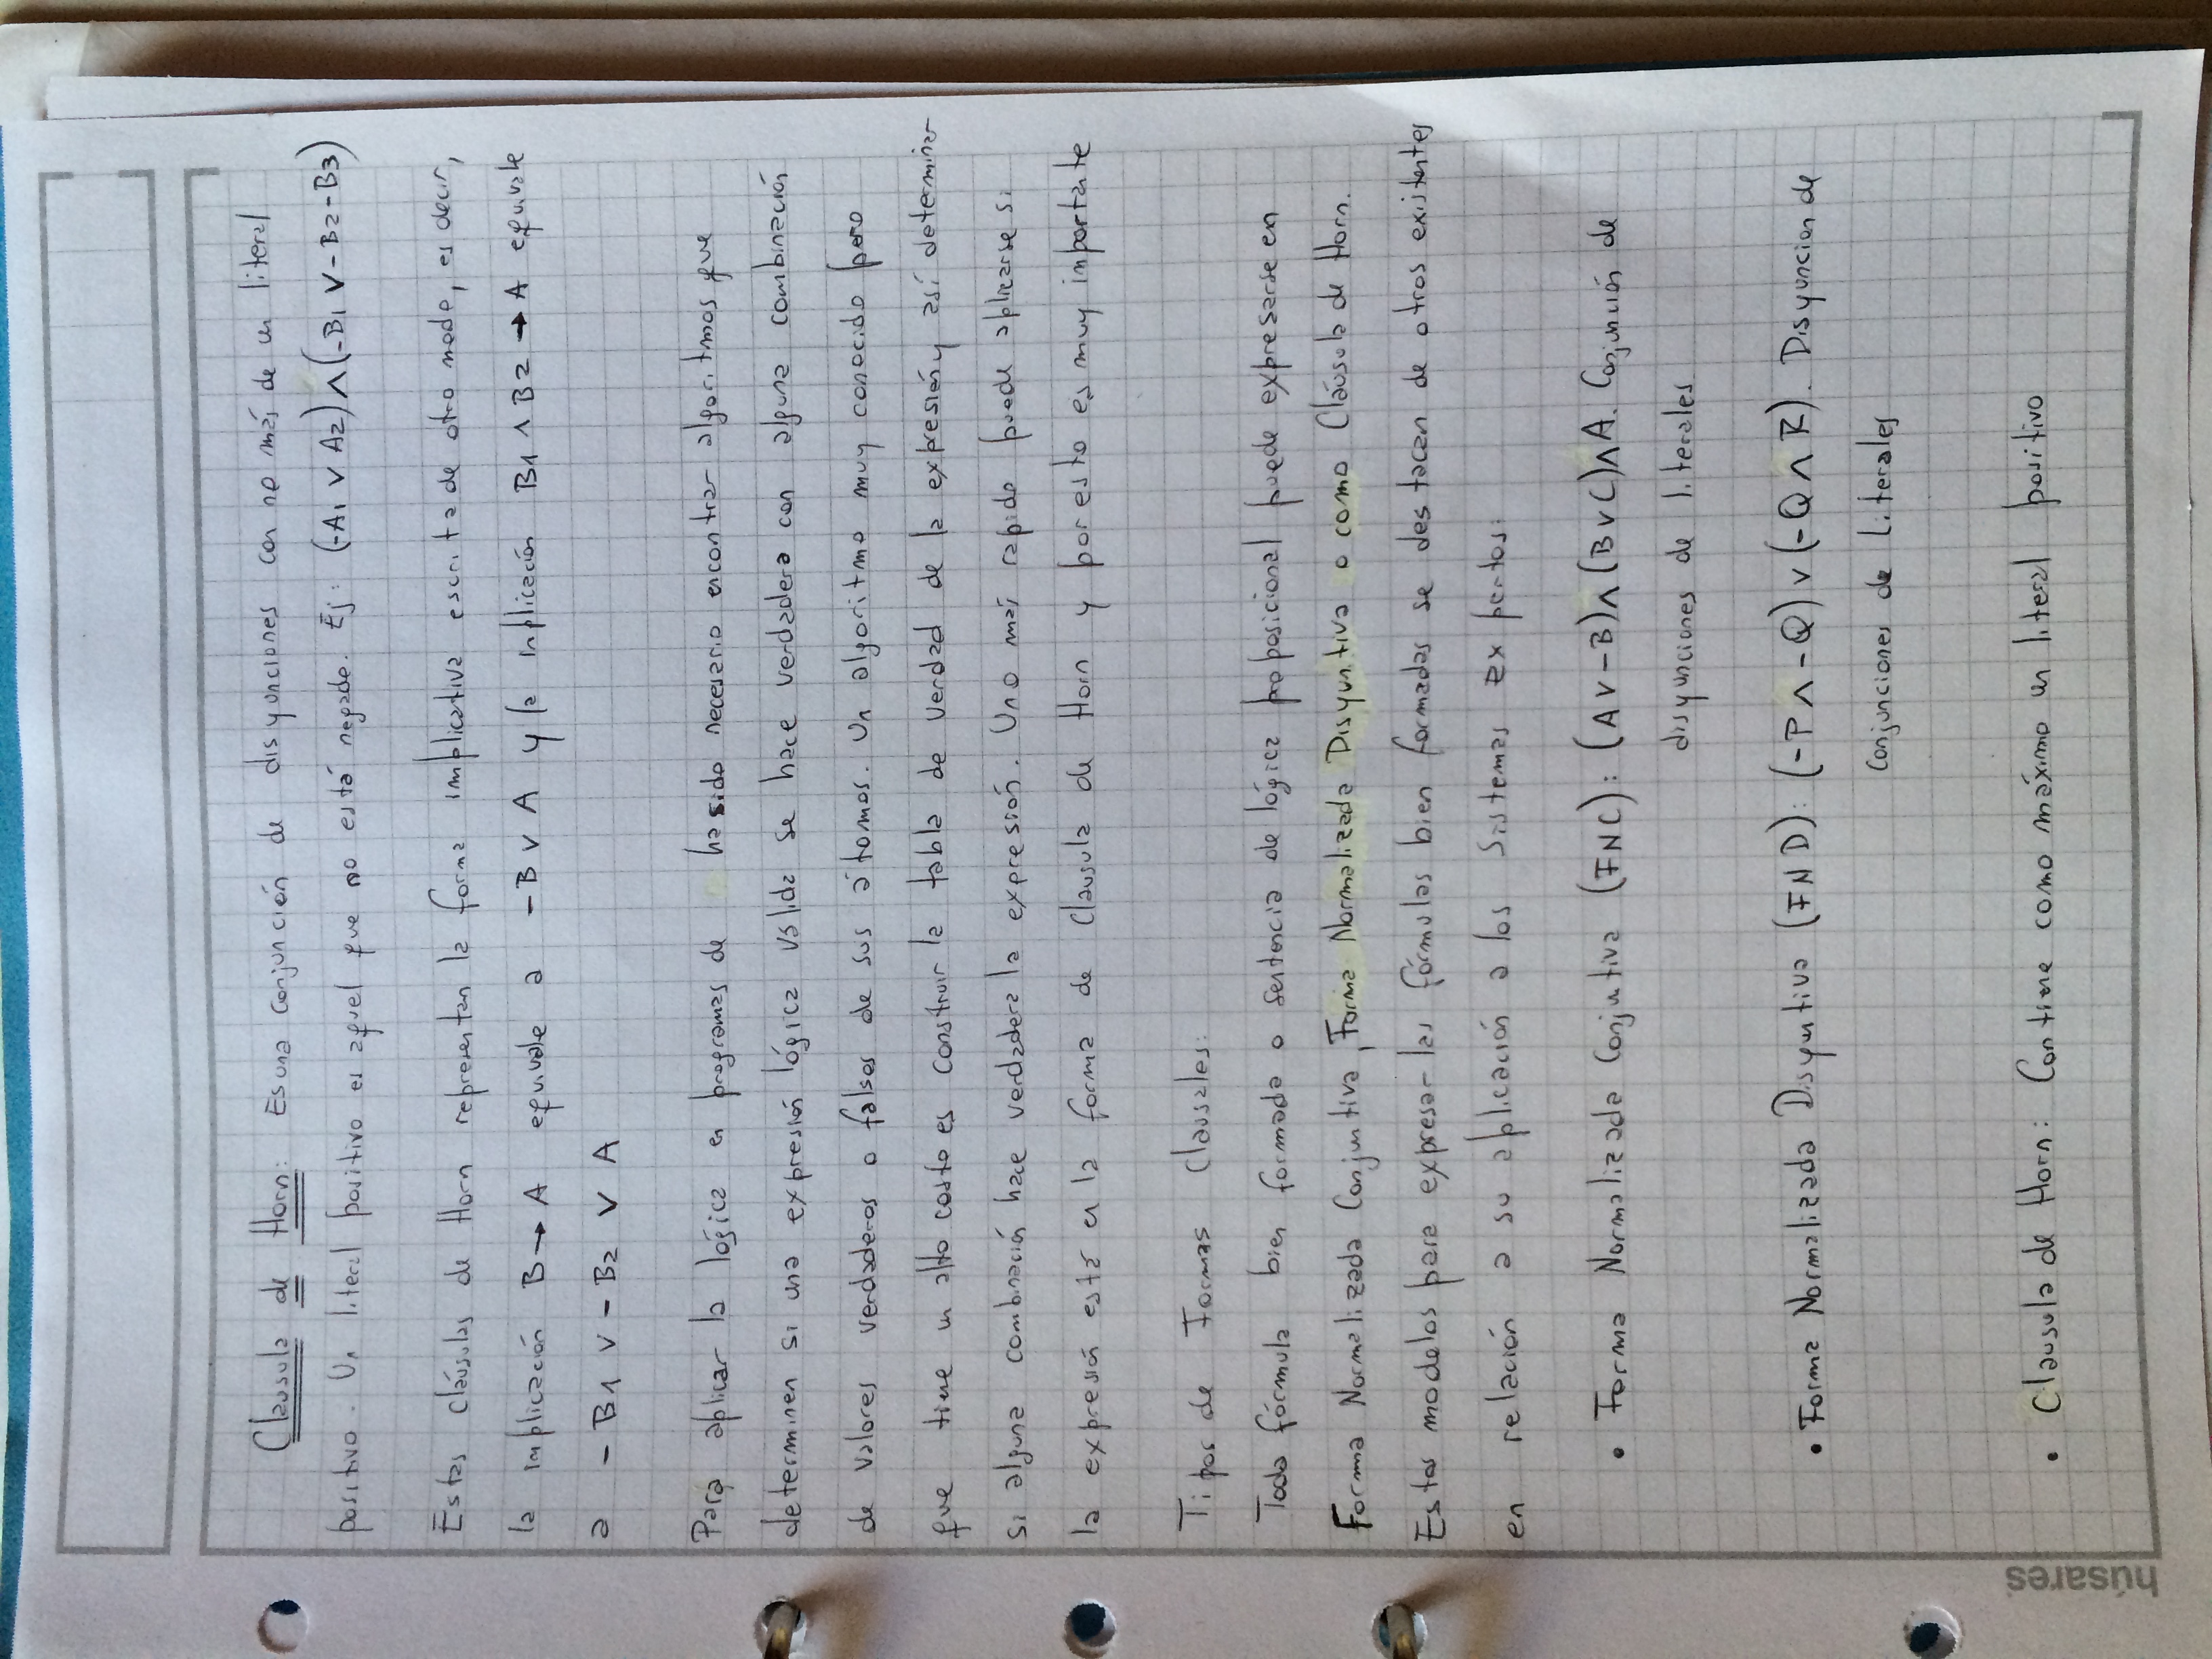 Clausula de Horn: Es una conjunción de disyunciones con no más de un literal
positivo. Un literal positivo es aquel que no está negado. Ej: (-A1 ∨ A2) ∧ (-B1 ∨ -B2 -B3)
Estas cláusulas de Horn representan la forma implicativa escrita de otro modo, es decir,
la implicación B → A equivale a -B ∨ A y la inplicación B1 ∧ B2 → A equivale
a -B1 ∨ -B2 ∨ A
Para aplicar la lógica en programas de ha sido necesario encontrar algoritmos que
determinen si una expresión lógica válida se hace verdadera con alguna combinación
de valores verdaderos o falsos de sus átomos. Un algoritmo muy conocido pero
que tiene un alto costo es construir la tabla de verdad de la expresión y así determinar
si alguna combinación hace verdadera la expresión. Uno más rapido puede aplicarse si
la expresión está en la forma de Clausula de Horn y por esto es muy inportante
Tipos de Formas Clausales:
Toda fórmula bien formada o sentencia de lógica proposicional puede expresarse en
Forma Normalizada Conjuntiva, Forma Normalizada Disyuntiva o como Cláusula de Horn.
Estos modelos para expresar las fórmulas bien formadas se destacan de otros existentes
en relación a su aplicación a los Sistemas expertos:
• Forma Normalizada Conjuntiva (FNC): (A ∨ -B) ∧ (B ∨ C) ∧ A. Conjunción de
disyunciones de literales
• Forma Normalizada Disyuntiva (FND): (-P ∧ -Q) ∨ (-Q ∧ R). Disyuncion de
conjunciones de Literales
• Clausula de Horn: Contiene como máximo un literal positivo
húsares